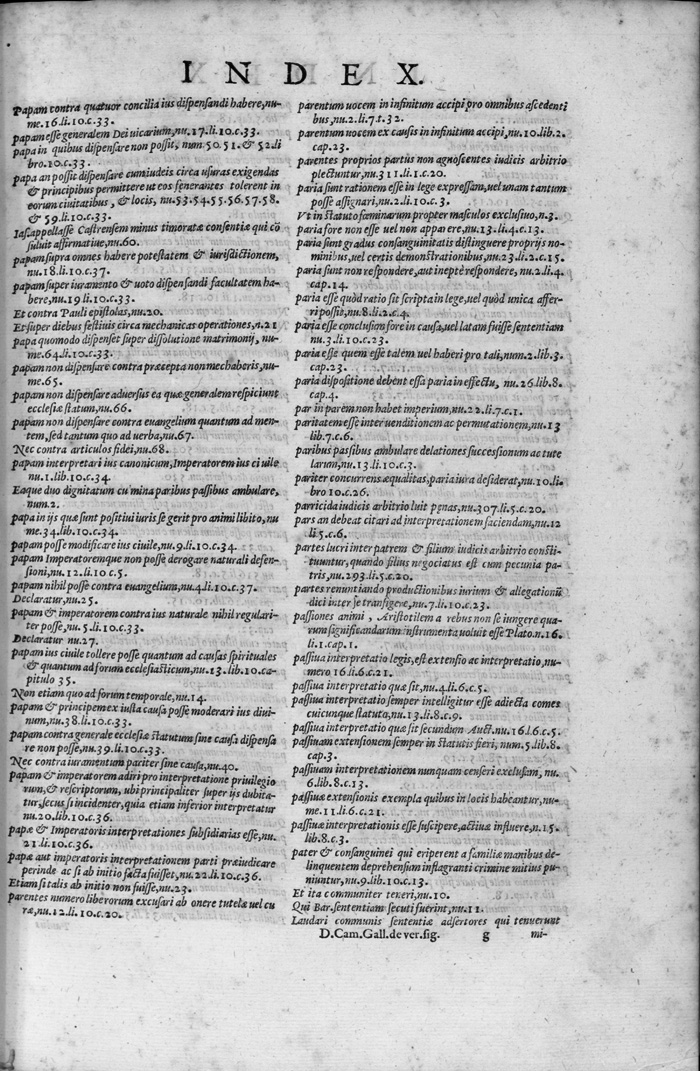 INDEX.
Papam contra quatuor concilia ius dispensandi habere, nu-
me.16.li.10.c.33.
papam esse generalem Dei uicarium, nu.17.li.10.c.33.
papa in quibus dispensare non possit, num.50.51. & 52.li
bro.10.c.33.
papa an possit dispensare cum iudeis circa usuras exigendas
& principibus permittere ut eos fenerantes tolerent in
eorum ciuitatibus, & locis, nu.53.54.55.56.57.58.
& 59.li.10.c.33.
Ias. appellasse Castrensem minus timoratæ consentiæ qui cō
suluit affirmatiue, nu.60.
papam supra omnes habere potestatem & iurisdictionem,
nu.18.li.10.c.37.
papam super iuramento & uoto dispensandi facultatem ha-
bere, nu.19.li.10.c.33.
Et contra Pauli epistolas, nu.20.
Et super diebus festiuis circa mechanicas operationes, n.21
papa quomodo dispenset super dissolutione matrimonij, nu-
me.64.li.10.c.33.
papam non dispensare contra præcepta non mechaberis, nu-
me.65.
papam non dispensare aduersus ea quæ generalem respiciunt
ecclesiæ statum, nu.66.
papam non dispensare contra euangelium quantum ad men-
tem, sed tantum quo ad uerba, nu.67.
Nec contra articulos fidei, nu.68.
papam interpretari ius canonicum, Imperatorem ius ciuile
nu.1.lib.10.c.34.
Eaque duo dignitatum cumina paribus passibus ambulare,
num.2.
papa in ijs quæ sunt positiui iuris se gerit pro animi libito, nu
me.34.lib.10.c.34.
papam posse modificare ius ciuile, nu.9.li.10.c.34.
papam Imperatoremque non posse derogare naturali defen-
sioni, nu.12.li.10 c.5.
papam nihil posse contra euangelium, nu.4.li.10.c.37.
Declaratur, nu.25.
papam & imperatorem contra ius naturale nihil regulari-
ter posse, nu.5.li.10.c.33.
Declaratur nu.27.
papam ius ciuile tollere posse quantum ad causas spirituales
& quantum ad forum ecclesiasticum, nu.13.lib.10.ca-
pitulo 35.
Non etiam quo ad forum temporale, nu.14.
papam & principem ex iusta causa posse moderari ius diui-
num, nu.38.li.10.c.33.
papam contra generale ecclesiæ statutum sine causa dispensa
re non posse, nu.39.li.10.c.33.
Nec contra iuramentum paciter sine causa, nu.40.
papam & imperatorem adiri pro interpretatione priuilegio
rum, & rescriptorum, ubi principaliter super ijs dubita-
tur, secus si incidenter, quia etiam inferior interpretatur
nu.20.lib.10.c.36.
papæ & Imperatoris interpretationes subsidiarias esse, nu.
21.li.10.c.36.
papæ aut imperatoris interpretationem parti præiudicare
perinde ac si ab initio facta fuisset, nu.22.li.10.c.36.
Etiam si talis ab initio non fuisse, nu.23.
parentes numero liberorum excusari ab onere tutelæ uel cu
ræ, nu.12.li.10.c.20.
parentum uocem in infinitum accipi pro omnibus ascedenti
bus, nu.2.li.7.t.32.
parentum uocem ex causis in infinitum accipi, nu.10.lib.2.
cap.23.
parentes proprios partus non agnoscentes iudicis arbitrio
plectuntur, nu.311.li.1.c.20.
paria sunt rationem esse in lege expressam, uel unam tantum
posse assignari, nu.2.li.10.c.3.
Vt in statuto fœminarum propter masculos exclusiuo, n.3.
paria fore non esse uel non apparere, nu.13.li.4.c.13.
paria sunt gradus consanguinitatis distinguere proprijs no-
minibus, uel certis demonstrationibus, nu.23.li.2.c.15.
paria sunt non respondere, aut inepte respondere, nu.2.li.4.
cap.14.
paria esse quòd ratio sit scripta in lege, uel quòd unica affer-
ri possit, nu.8.li.2.c.4.
paria esse conclusion fore in causa, uel latam fuisse sententiam
nu.3.li.10.c.23.
paria esse quem esse talem uel haberi pro tali, num.2.lib.3.
cap.23.
paria dispositione debent esse paria in effectu, nu.26.lib.8.
cap.4.
par in parem non habet imperium, nu.22.li.7.c.1.
paritatem esse inter uenditionem ac permutationem, nu.13
lib.7.c.6.
paribus passibus ambulare delationes successionum ac tute
larum, nu.13.li.10.c.3.
pariter concurrens æqualitas, paria iura desiderat, nu.10.li-
bro 10.c.26.
parricida iudicis arbitrio luit pgnas, nu.307.li.5.c.20.
pars an debeat citari ad interpretationem faciendam, nu.12
li.5.c.6.
partes lucri inter patrem & filium iudicis arbitrio consti-
tuuntur, quando filius negociatus est cum pecunia pa-
tris, nu.293.li.5.c.20.
partes renuntiando productionibus iurium & allegationū
dici inter se transigere, nu.7.li.10.c.23.
passiones animi, Aristotilem a rebus non se iungere qua-
rum significandarum instrumenta uoluit esse Plato.n.16.
li.1.cap.1.
passiua interpretatio legis, est extensio ac interpretatio, nu-
mero 16.li.6.c.21.
passiua interpretatio quæ sit, nu.4.li.6.c.5.
passiua interpretatio semper intelligitur esse adiecta comes
cuicunque statuto, nu.13.li.8.c.9.
passiua interpretatio quæ sit secundum Auct.nu.16.l.6.c.5.
passiuam extensionem semper in statutis fieri, num.5.lib.8.
cap.3.
passiuam interpretationem nunquam censeri exclusam, nu.
6.lib.8.c.13.
passiuæ extensionis exempla quibus in locis habeantur, nu-
me.11.li.6.c.21.
passiuæ interpretationis esse suscipere, actiuæ influere, n.15.
lib.8.c.3.
pater & consanguinei qui eriperent a familiæ manibus de-
linquentem deprehensum in flagranti crimine mitius pu-
niuntur, nu.9.lib.10.c.13.
Et ita communiter teneri, nu.10.
Qui Bar. sententiam secuti fuerint, nu.11.
Laudari communis sententiæ adsertores qui tenuerunt
D.Cam.Gall.de ver.sig. g mi-